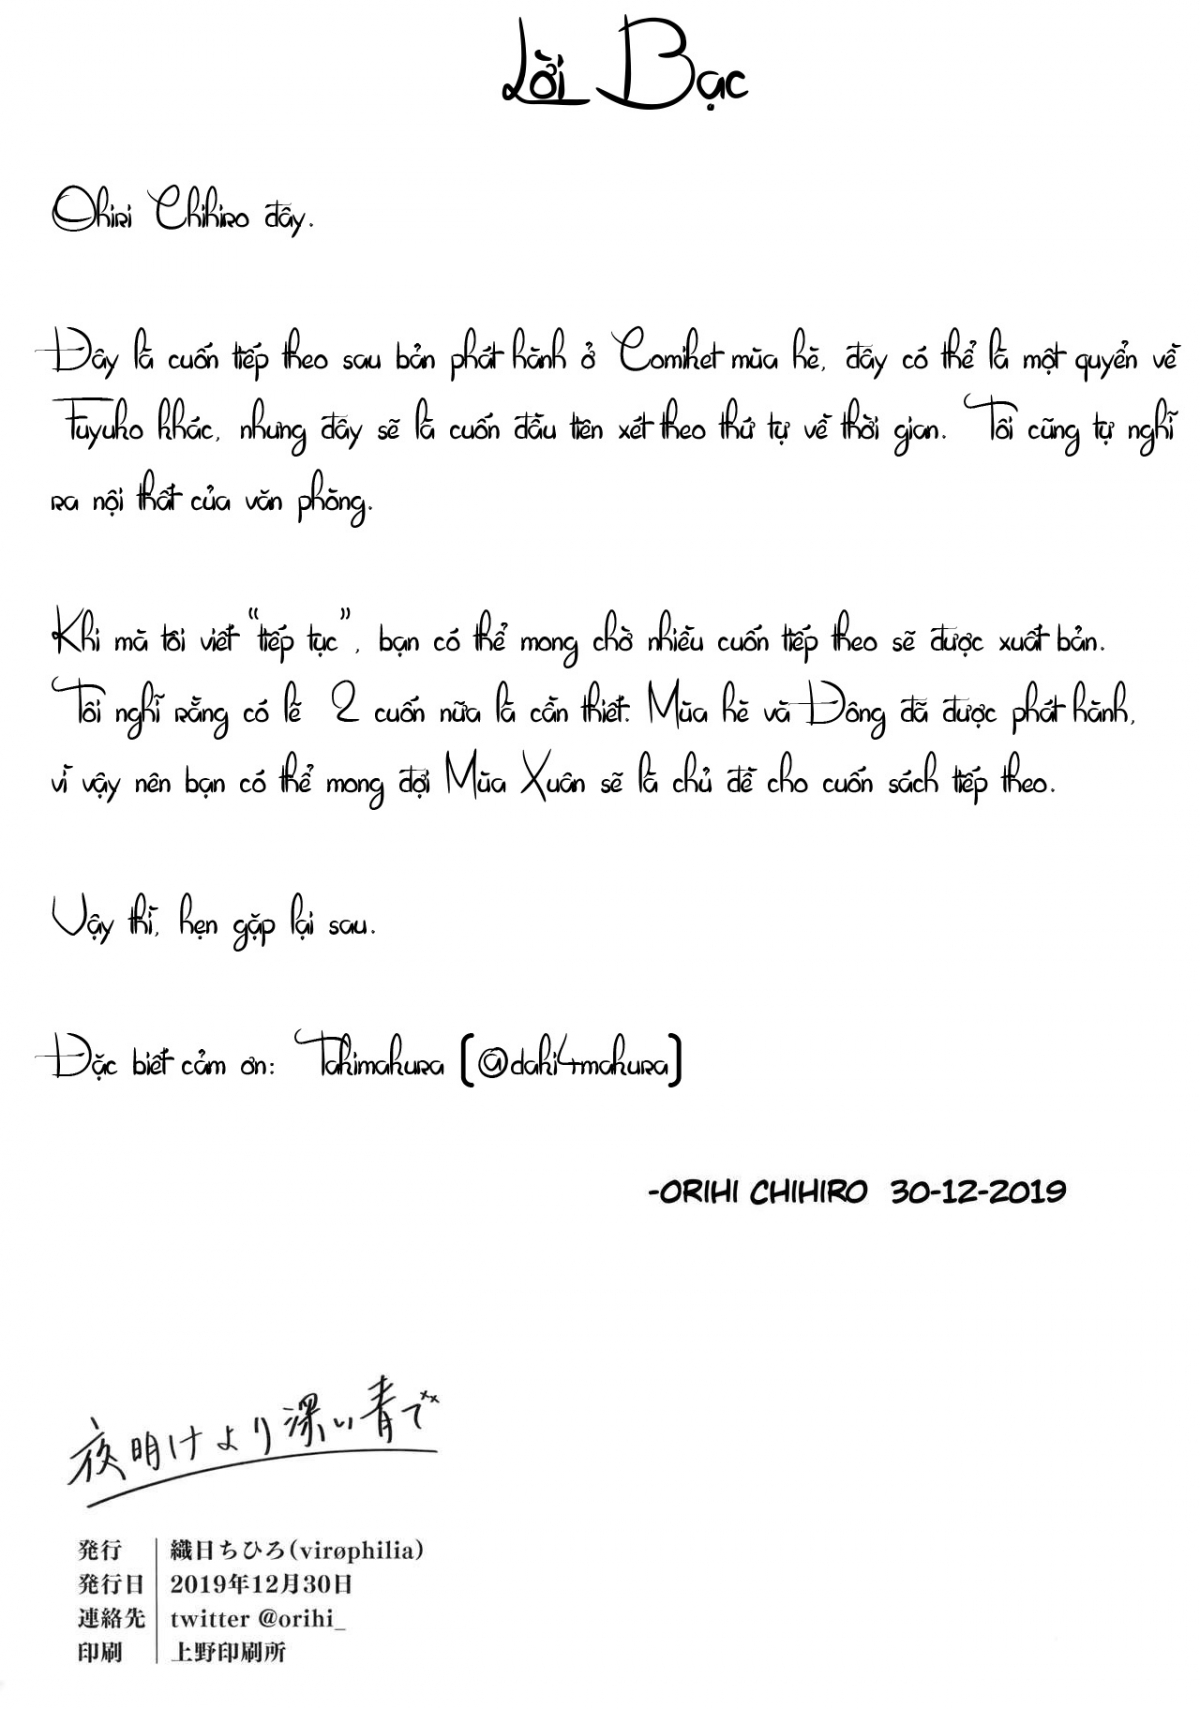 Lời Bạc
Ohiri Chihiro đây.
Đây là cuốn tiếp theo sau bản phát hành ở Comiket mùa hè, đây có thể là một quyển về
Fuyuko khác, nhưng đây sẽ là cuốn đầu tiên xét theo thứ tự về thời gian. Tôi cũng tự nghĩ
ra nội thất của văn phòng.
Khi mà tôi viết "tiếp tục", bạn có thể mong chờ nhiều cuốn tiếp theo sẽ được xuất bản.
Tôi nghĩ rằng có lẽ 2 cuốn nữa là cần thiết. Mùa hè và Đông đã được phát hành,
vì vậy nên bạn có thể mong đợi Mùa Xuân sẽ là chủ đề cho cuốn sách tiếp theo.
Vậy thì, hẹn gặp lại sau.
Đặc biết cảm ơn: Takimakura (@daki4makura)
-ORIHI CHIHIRO 30-12-2019
夜明けより深い青で
発行 織日ちひろ(virøphilia)
発行日 2019年12月30日
連絡先 twitter @orihi_
印刷 上野印刷所